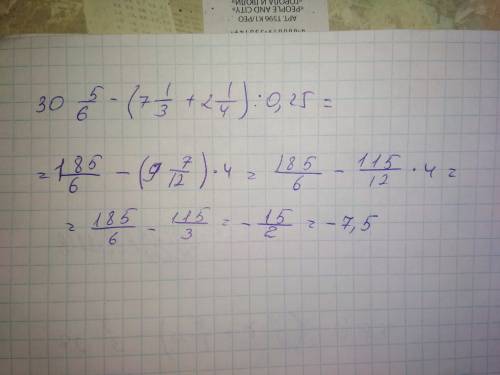 АРТ. T596 K1/PEO
«PEOPLE AND CITY»
«ГОРОДА И ЛЮДИ»
30 5/6 - (7 1/3 + 2 1/4) : 0,25 =
= 185/6 - (9 7/12) · 4 = 185/6 - 115/12 · 4 =
= 185/6 - 115/3 = - 15/2 = - 7,5